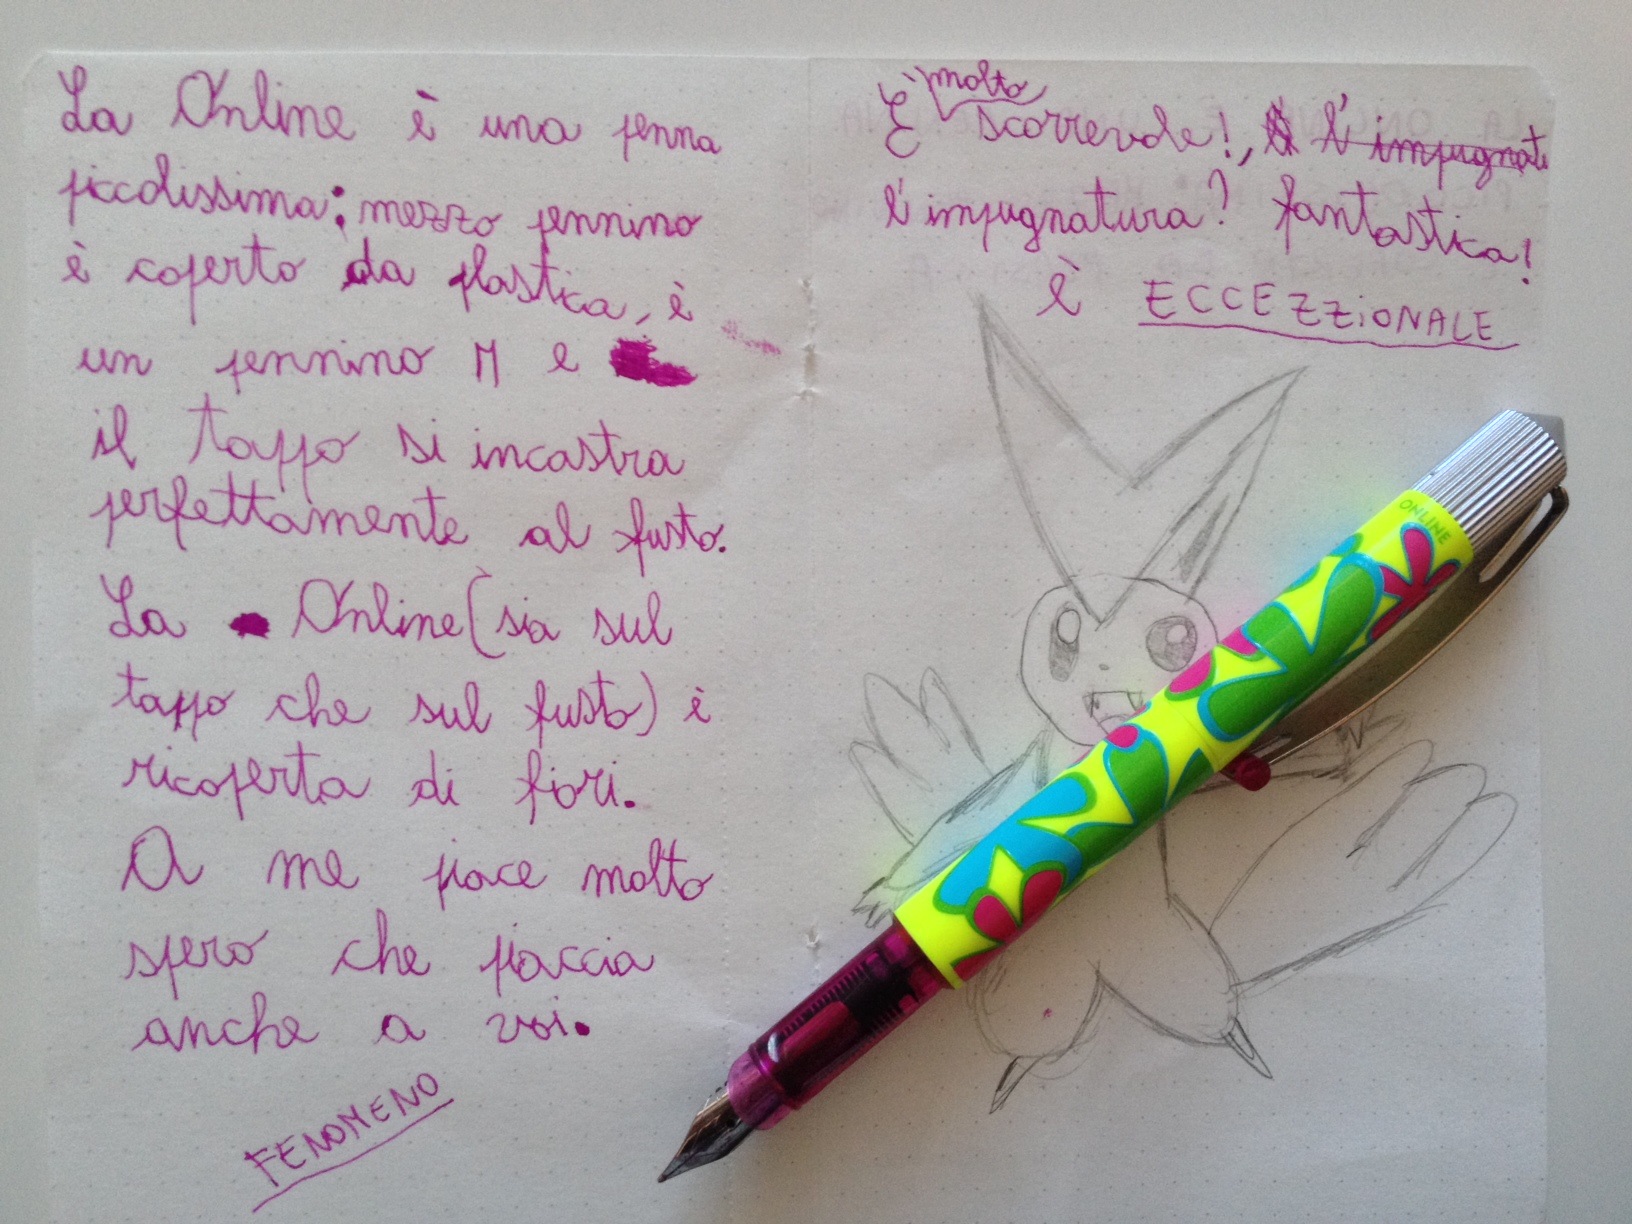 La Online è una penna
piccolissima: mezzo pennino
è coperto da plastica, è
un pennino M e
il tappo si incastra
perfettamente al fusto.
La Online (sia sul
tappo che sul fusto) è
ricoperta di fiori.
A me piace molto
spero che piaccia
anche a voi.
FENOMENO
È molto scorrevole!, l'impugnat
l'impugnatura? fantastica!
è ECCEZZIONALE
ONLINE